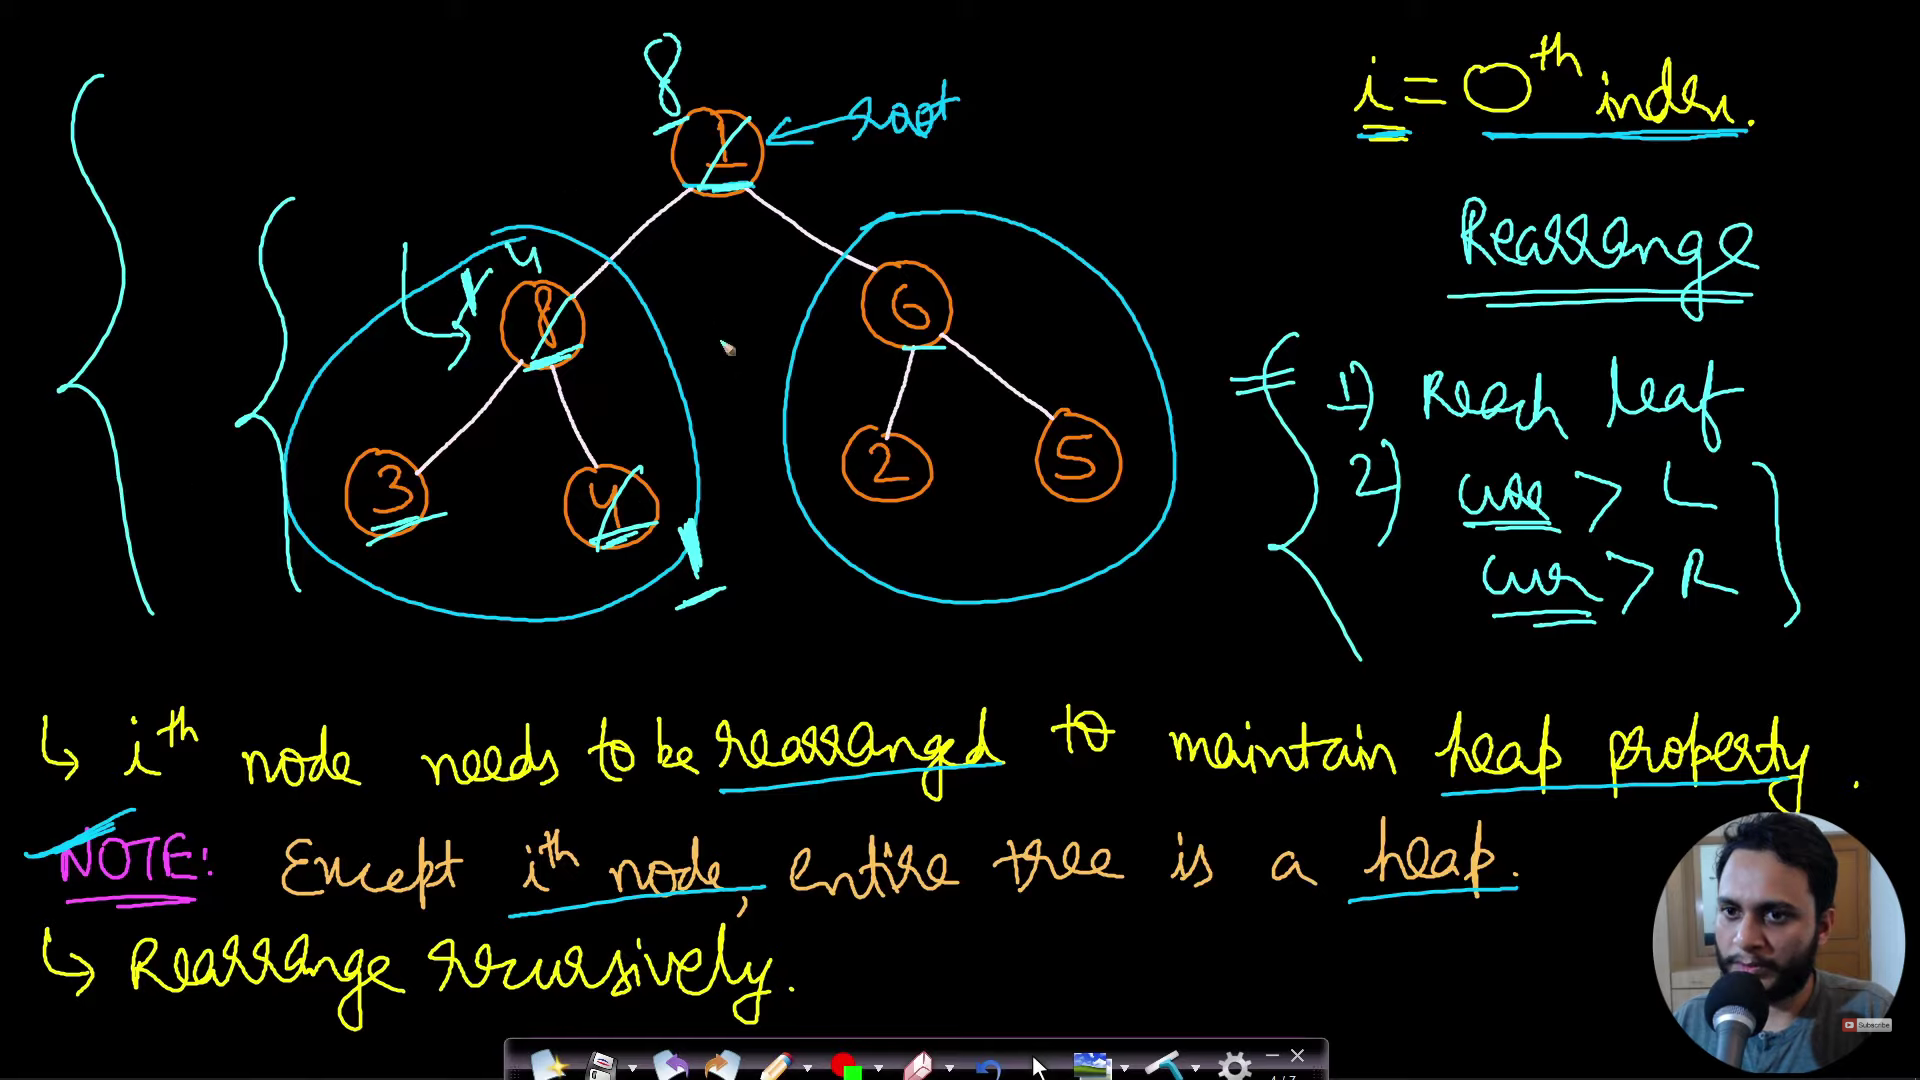 8
1 ← root
i = 0th index.
Rearrange
1 4
8
6
3
4
2
5
1
1) Reach leaf
2) curr > L
curr > R
↳ ith node needs to be rearranged to maintain heap property.
NOTE: Except ith node, entire tree is a heap.
↳ Rearrange recursively.
Subscribe